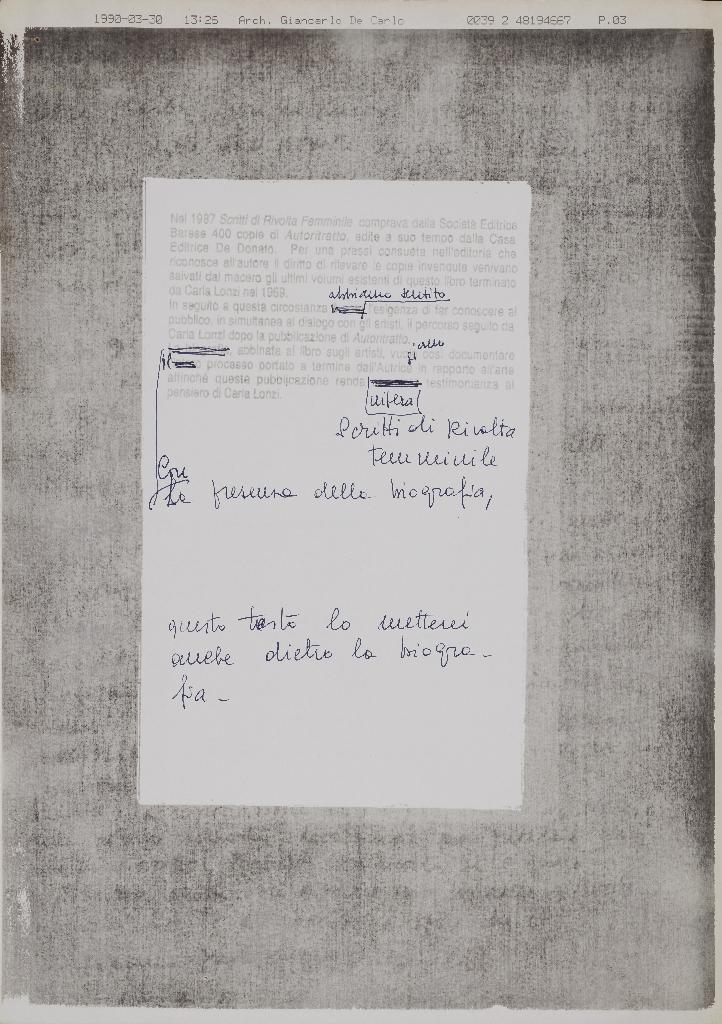 1990-03-30 13:25 Arch. Giancarlo De Carlo 0039 2 48194667 P.03
Nel 1987 Scritti di Rivolta Femminile comprava dalla Società Editrice
Barese 400 copie di Autoritratto, edite a suo tempo dalla Casa
Editrice De Donato. Per una prassi consueta nell'editoria che
riconosce all'autore il diritto di rilevare le copie invendute venivano
salvati dal macero gli ultimi volumi esistenti di questo libro terminato
da Carla Lonzi nel 1969.
abbiamo sentito
In seguito a questa circostanza l'esigenza di far conoscere al
pubblico, in simultanea al dialogo con gli artisti, il percorso seguito da
Carla Lonzi dopo la pubblicazione di Autoritratto.
abbinata al libro sugli artisti, vuole così documentare
processo portato a termine dall'Autrice in rapporto all'arte
affinché questa pubblicazione renda testimonianza al
intera
pensiero di Carla Lonzi.
Scritti di Rivolta
Femminile
Con
La presenza della biografia,
questo testo lo metterei
anche dietro la biogra-
fia -